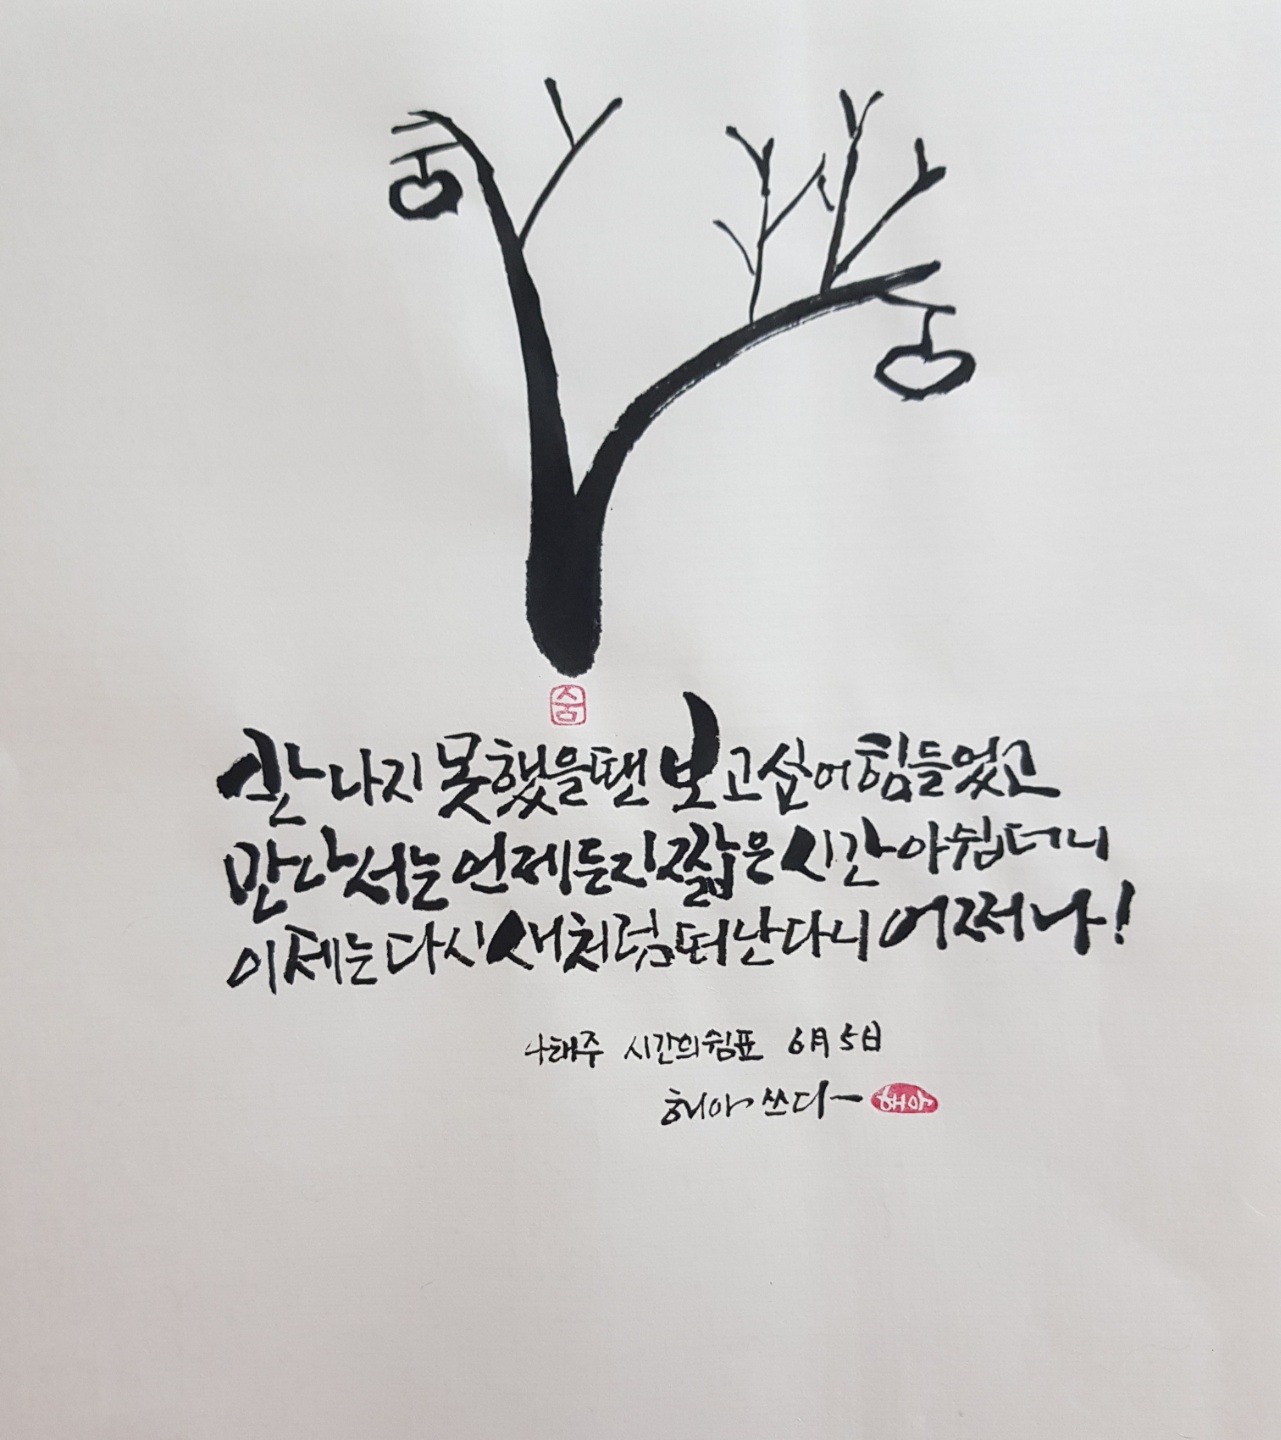 숨
만나지 못했을땐 보고싶어 힘들었고
만나서는 언제든지 짧은 시간 아쉽더니
이제는 다시 새처럼 떠난다니 어쩌나!
나태주 시간의쉼표 6月 5日
혜아 쓰다 혜아